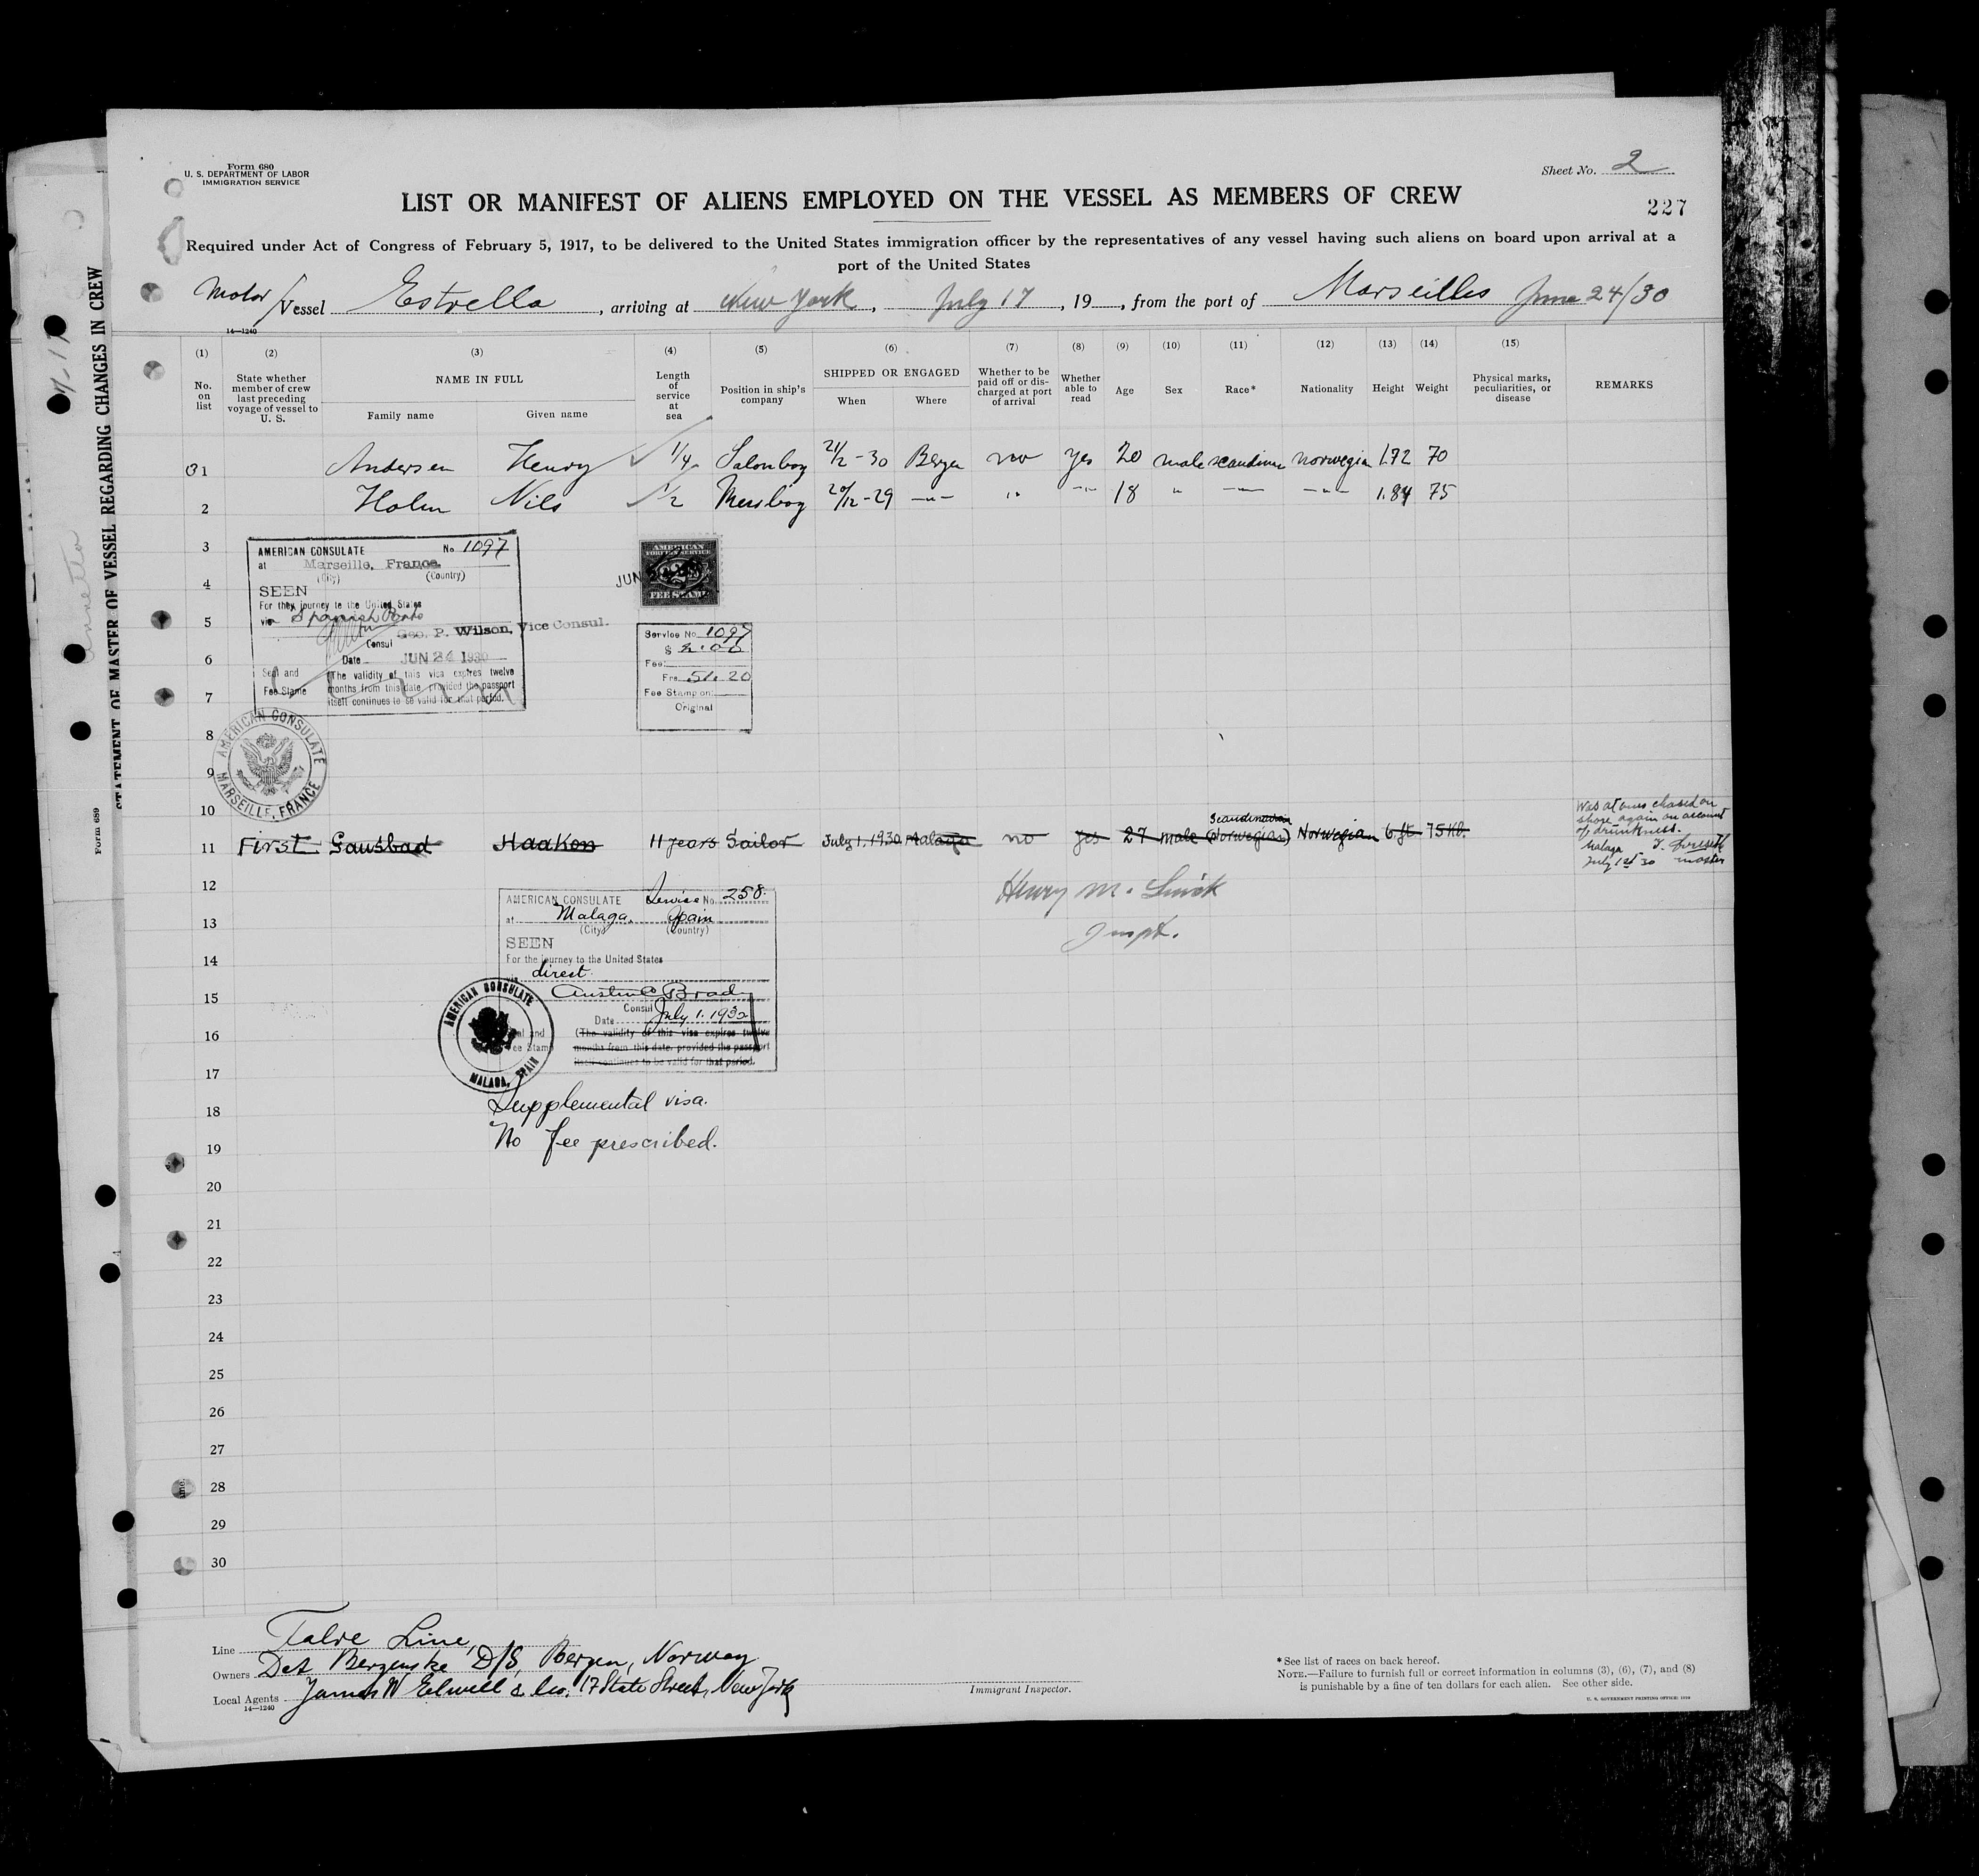 Form 680
U. S. DEPARTMENT OF LABOR
IMMIGRATION SERVICE
Sheet No. 2
227
LIST OR MANIFEST OF ALIENS EMPLOYED ON THE VESSEL AS MEMBERS OF CREW
Required under Act of Congress of February 5, 1917, to be delivered to the United States immigration officer by the representatives of any vessel having such aliens on board upon arrival at a
port of the United States
Motor/Vessel Estrella, arriving at New York, July 17, 19, from the port of Marseilles June 24/30
14—1240
(1) (2) (3) (4) (5) (6) (7) (8) (9) (10) (11) (12) (13) (14) (15)
No. on list
State whether member of crew last preceding voyage of vessel to U. S.
NAME IN FULL
Family name Given name
Length of service at sea
Position in ship's company
SHIPPED OR ENGAGED
When Where
Whether to be paid off or discharged at port of arrival
Whether able to read
Age
Sex
Race*
Nationality
Height
Weight
Physical marks, peculiarities, or disease
REMARKS
1 Andersen Henry 1/4 Salonboy 21/2-30 Bergen no yes 20 male scandinav norwegia 1.72 70
2 Holm Nils 1/2 Messboy 20/12-29 —"— " —"— 18 " —"— —"— 1.84 75
3
4
5
6
7
8
9
10
AMERICAN CONSULATE No. 1097
at Marseille, France.
(City) (Country)
SEEN
For the journey to the United States
via Spanish Ports
Geo. P. Wilson, Vice Consul.
Consul
Date JUN 24 1930
Seal and Fee Stamp
(The validity of this visa expires twelve
months from this date, provided the passport
itself continues to be valid for that period.
AMERICAN CONSULATE
MARSEILLE, FRANCE.
JUN
AMERICAN
FOREIGN SERVICE
2
FEE STAMP
Service No. 1097
$ 2.00
Fee:
Frs. 51.20
Fee Stamp on:
Original
11 First Gausbad Haakon 11 years Sailor July 1. 1930 Malaga no yes 27 male Scandinavian (Norwegian) Norwegian 6 ft. 75 Kil.
Was at once chased on
shore again on account
of drunkness.
Malaga
July 1st 30 master
Henry M.
Inspt.
12
13
14
15
16
17
18
19
20
21
22
23
24
25
26
27
28
29
30
AMERICAN CONSULATE Service No. 258
at Malaga, Spain
(City) (Country)
SEEN
For the journey to the United States
via direct
Consul
Date July 1. 1930
Seal and Fee Stamp
(The validity of this visa expires twelve
months from this date, provided the passport
itself continues to be valid for that period.
AMERICAN CONSULATE
MALAGA, SPAIN
Supplemental visa.
No fee prescribed.
Line Fabre Line,
Owners Det Bergenske D/S, Bergen, Norway
Local Agents James W Elwell & Co. 17 State Street, New York
14—1240
Immigrant Inspector.
*See list of races on back hereof.
NOTE.—Failure to furnish full or correct information in columns (3), (6), (7), and (8)
is punishable by a fine of ten dollars for each alien. See other side.
U. S. GOVERNMENT PRINTING OFFICE:
STATEMENT OF MASTER OF VESSEL REGARDING CHANGES IN CREW
Form 689